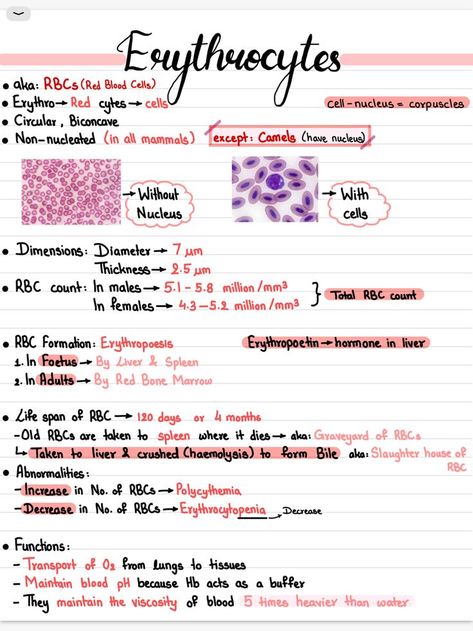 Erythrocytes
• aka: RBCs (Red Blood Cells)
• Erythro → Red cytes → cells
cell-nucleus = corpuscles
• Circular, Biconcave
• Non-nucleated (in all mammals) except: Camels (have nucleus)
→ Without Nucleus
→ With cells
• Dimensions: Diameter → 7 µm
Thickness → 2.5 µm
• RBC count: In males → 5.1 - 5.8 million/mm³
In females → 4.3 - 5.2 million/mm³
} Total RBC count
• RBC Formation: Erythropoesis
Erythropoetin → hormone in liver
1. In Foetus → By Liver & Spleen
2. In Adults → By Red Bone Marrow
• Life span of RBC → 120 days or 4 months
- Old RBCs are taken to spleen where it dies → aka: Graveyard of RBCs
↳ Taken to liver & crushed (haemolysis) to form Bile aka: Slaughter house of RBC
• Abnormalities:
- Increase in No. of RBCs → Polycythemia
- Decrease in No. of RBCs → Erythrocytopenia → Decrease
• Functions:
- Transport of O₂ from lungs to tissues
- Maintain blood pH because Hb acts as a buffer
- They maintain the viscosity of blood 5 times heavier than water